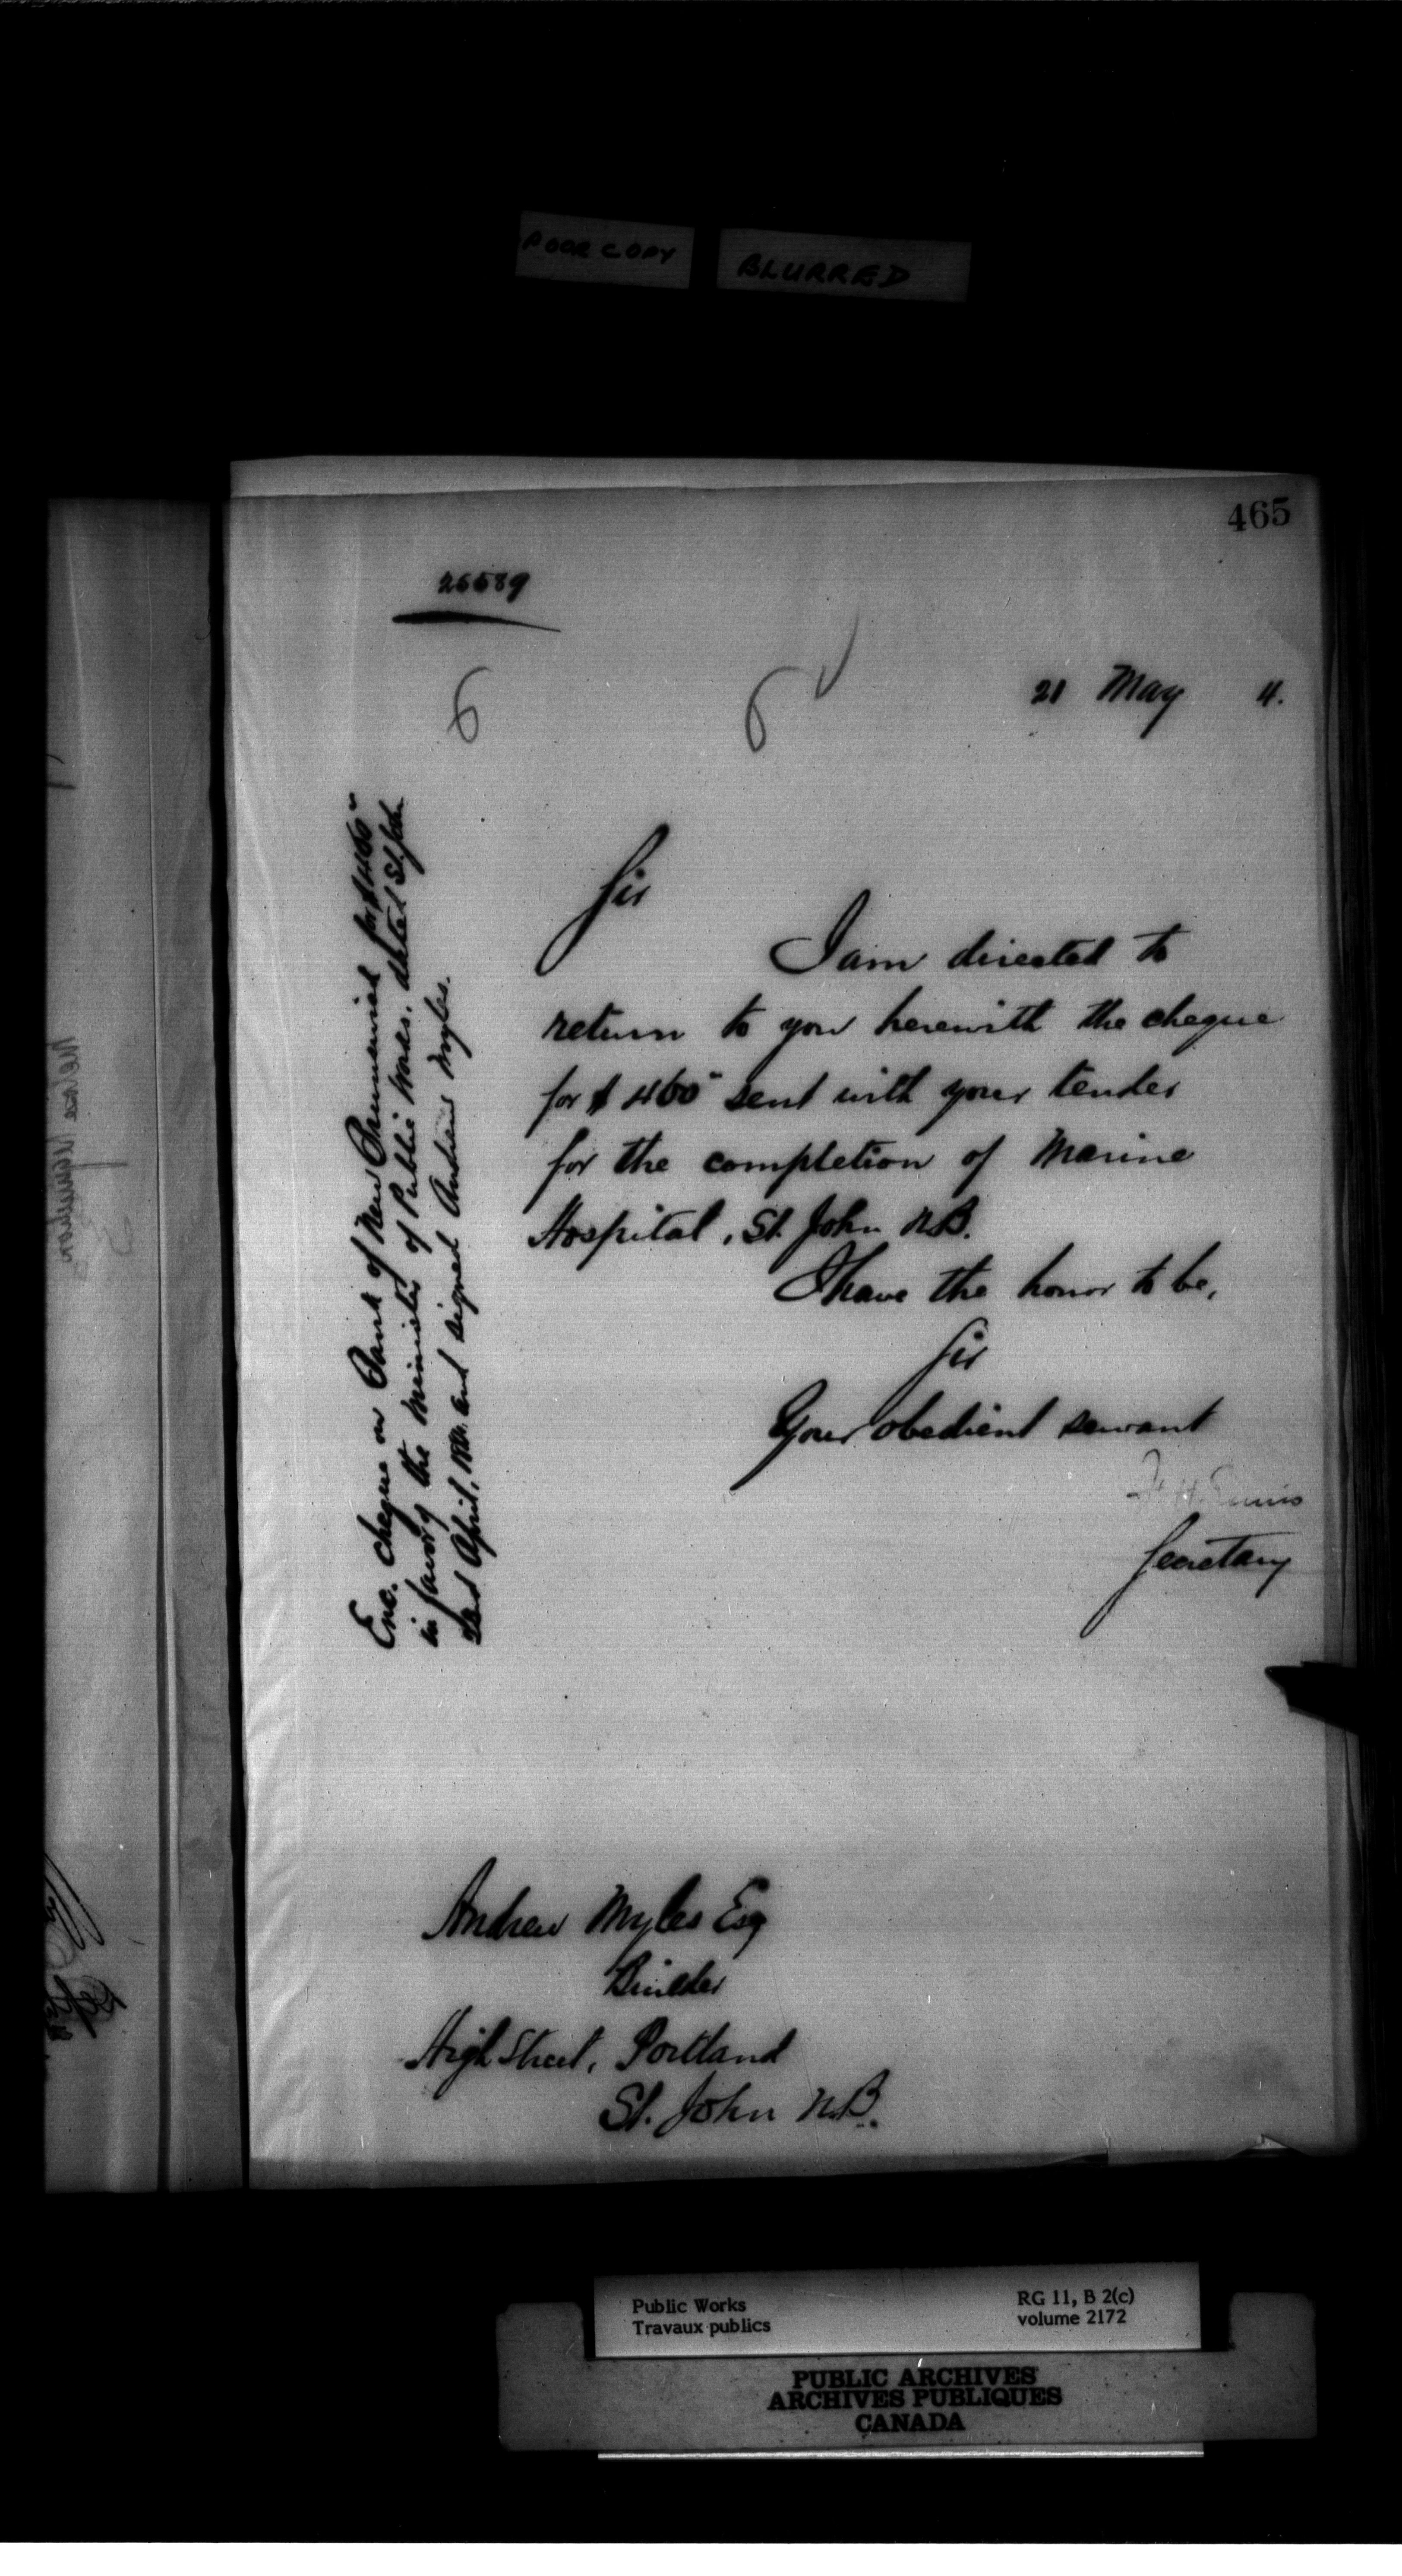 POOR COPY BLURRED
465
26589
6 6
21 May 4.
Sir
I am directed to
return to you herewith the cheque
for $460 sent with your tender
for the completion of Marine
Hospital, St. John N.B.
I have the honor to be,
Sir
Your obedient servant
F. H. Ennis
Secretary
Enc. cheque on Bank of New Brunswick for $460
in favor of the Minister of Public Works, dated St. John
April, and signed Andrew Myles.
Andrew Myles Esq
Builder
High Street, Portland
St. John N.B.
Public Works RG 11, B 2(c)
Travaux publics volume 2172
PUBLIC ARCHIVES
ARCHIVES PUBLIQUES
CANADA